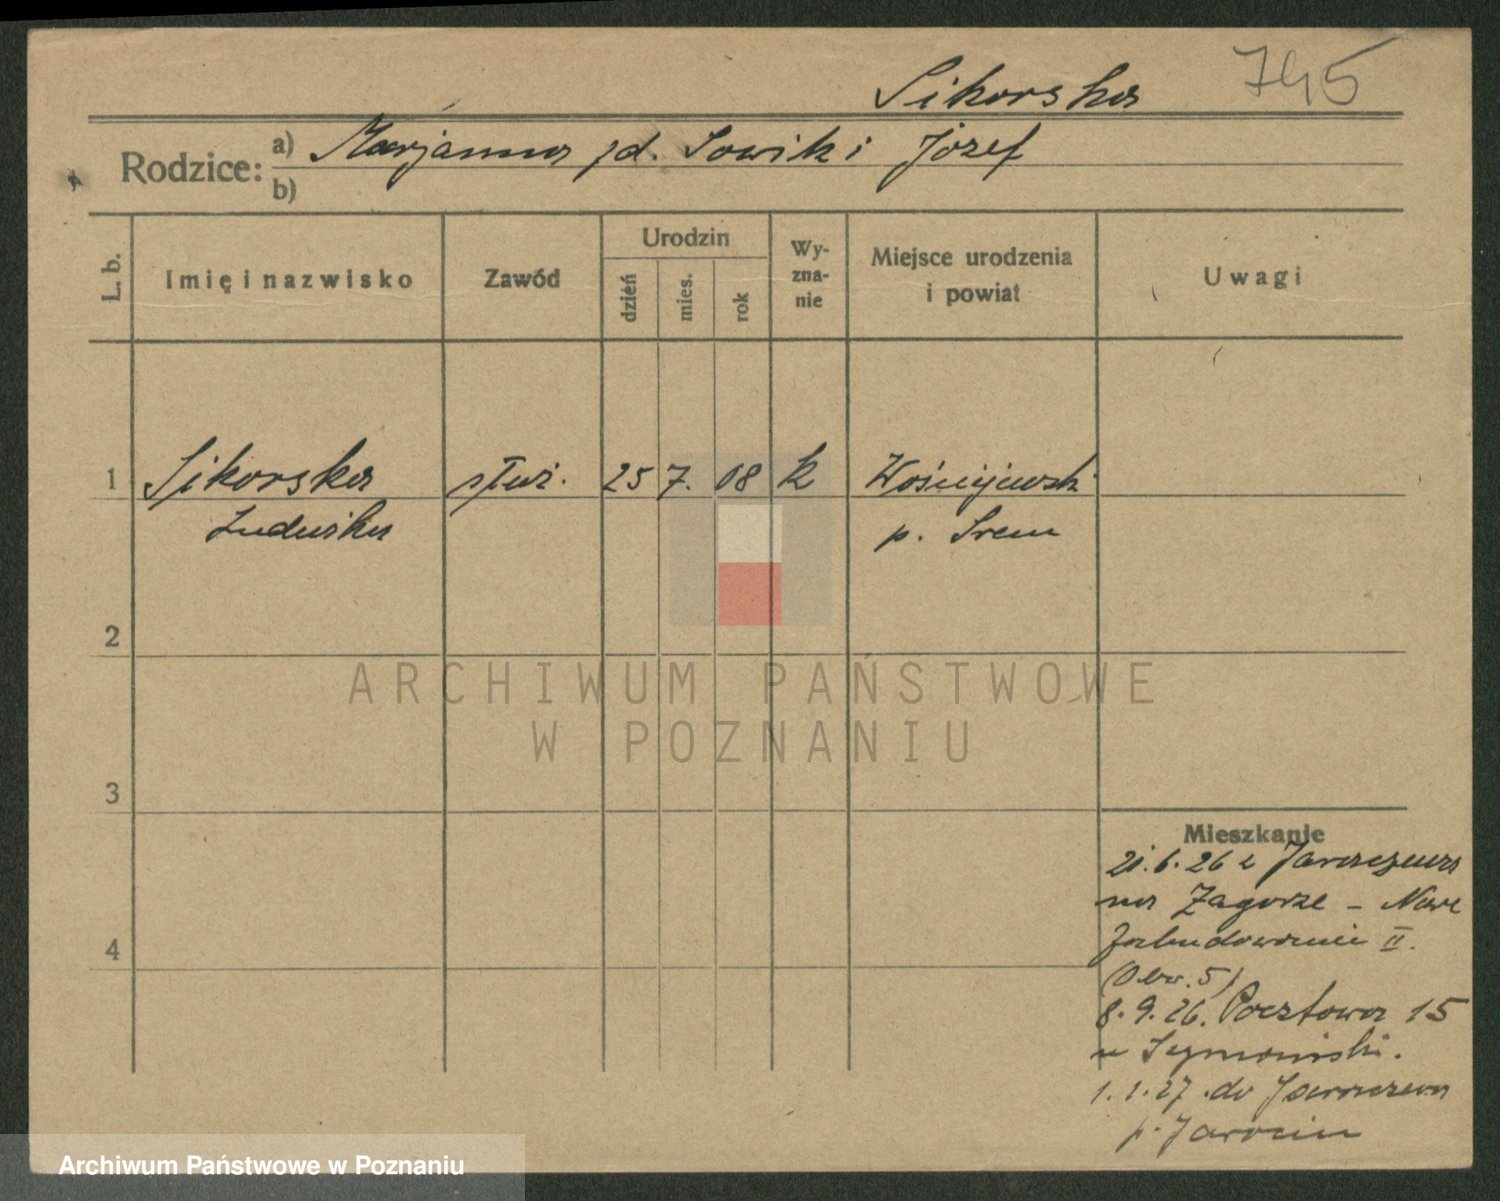 745
Sikorska
Rodzice:
a) Marjanna zd. Sowiki Józef
b)
L. b.
Imię i nazwisko
Zawód
Urodzin
dzień
mies.
rok
Wy-
zna-
nie
Miejsce urodzenia
i powiat
Uwagi
1 Sikorska służ. 25 7. 08 k
Ludwika p. Śrem
2
ARCHIWUM PAŃSTWOWE
W POZNANIU
3
4
Mieszkanie
21.6.26 z Jaraczewa
na Zagórze – Nowe
Zabudowanie II.
(Obw. 5)
8.9.26. Pocztowa 15
u
1.1.27 do Jaraczewa
p. Jarocin
Archiwum Państwowe w Poznaniu